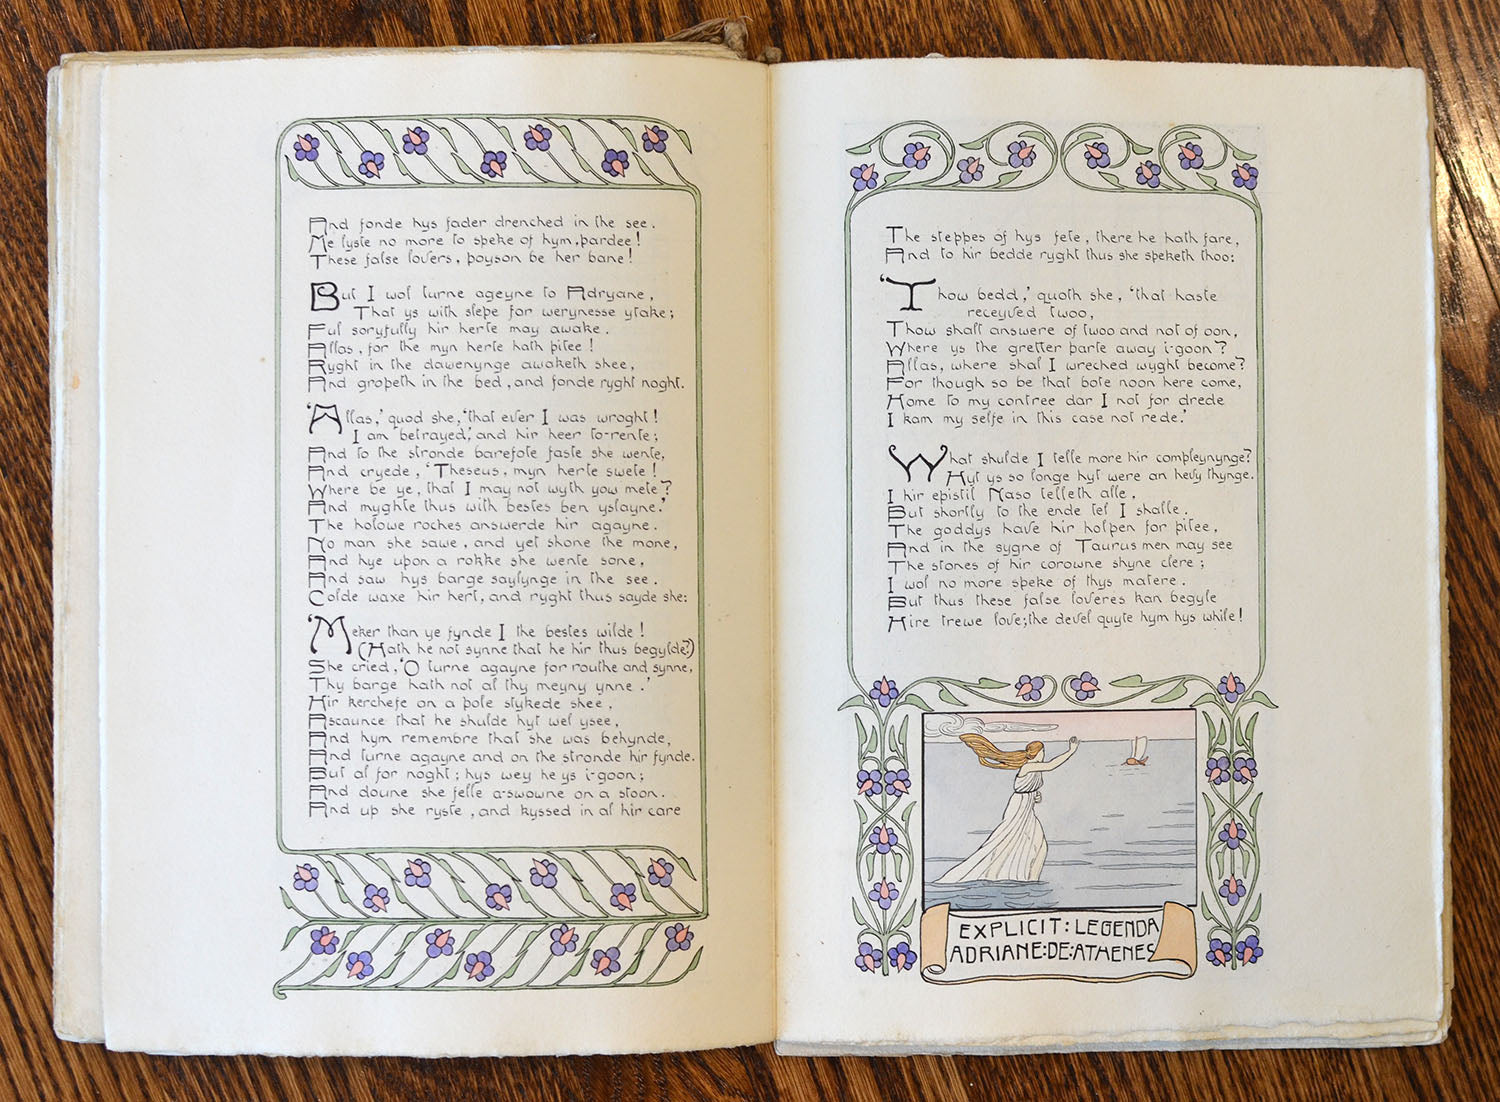 And fonde hys fader drenched in the see.
Me lyste no more to speke of hym, pardee!
These false lovers, poyson be her bane!
But I wol turne ageyne to Adryane,
That ys with slepe for werynesse ytake;
Ful soryfully hir herte may awake.
Allas, for the myn herte hath pitee!
Ryght in the dawenynge awaketh shee,
And gropeth in the bed, and fonde ryght noght.
'Allas,' quod she, 'that ever I was wroght!
I am betrayed,' and hir heer to-rente;
And to the stronde barefote faste she wente,
And cryede, 'Theseus, myn herte swete!
Where be ye, that I may not wyth yow mete?
And myghte thus with bestes ben yslayne.'
The holowe roches answerde hir agayne.
No man she sawe, and yet shone the mone,
And hye upon a rokke she wente sone,
And saw hys barge saylynge in the see.
Colde waxe hir hert, and ryght thus sayde she:
'Meker than ye fynde I the bestes wilde!
(Hath he not synne that he hir thus begylde?)
She cried, 'O turne agayne for routhe and synne,
Thy barge hath not al thy meyny ynne.'
Hir kerchefe on a pole stykede shee,
Ascaunce that he shulde hyt wel ysee,
And hym remembre that she was behynde,
And turne agayne and on the stronde hir fynde.
But al for noght; hys wey he ys i-goon;
And doune she felle a-swowne on a stoon.
And up she ryste, and kyssed in al hir care
The steppes of hys fete, there he hath fare,
And to hir bedde ryght thus she speketh thoo:
'Thow bedd,' quoth she, 'that haste
receyved twoo,
Thow shalt answere of twoo and not of oon,
Where ys the gretter parte away i-goon?
Allas, where shal I wreched wyght become?
For though so be that bote noon here come,
Home to my contree dar I not for drede
I kam my selfe in this case not rede.'
What shulde I telle more hir compleynynge?
Hyt ys so longe hyt were an hevy thynge.
I hir epistil Naso telleth alle,
But shortly to the ende tel I shalle.
The goddys have hir holpen for pitee,
And in the sygne of Taurus men may see
The stones of hir corowne shyne clere;
I wol no more speke of thys matere.
But thus these false loveres kan begyle
Hire trewe love; the devel quyte hym hys while!
EXPLICIT: LEGENDA
ADRIANE: DE: ATHENES